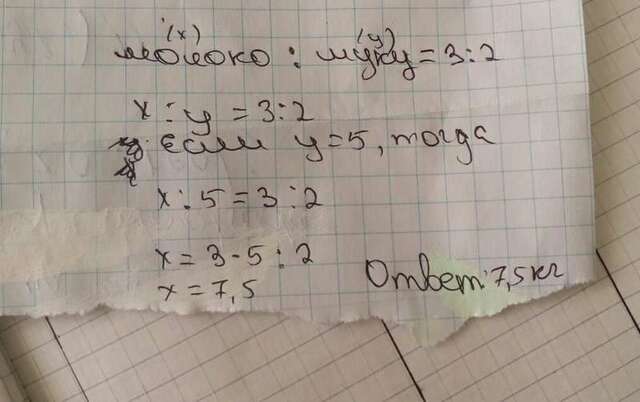 (x) (y)
молоко : муку = 3:2
x : y = 3:2
Если y=5, тогда
x : 5 = 3 : 2
x = 3·5 : 2
x = 7,5
Ответ: 7,5 кг